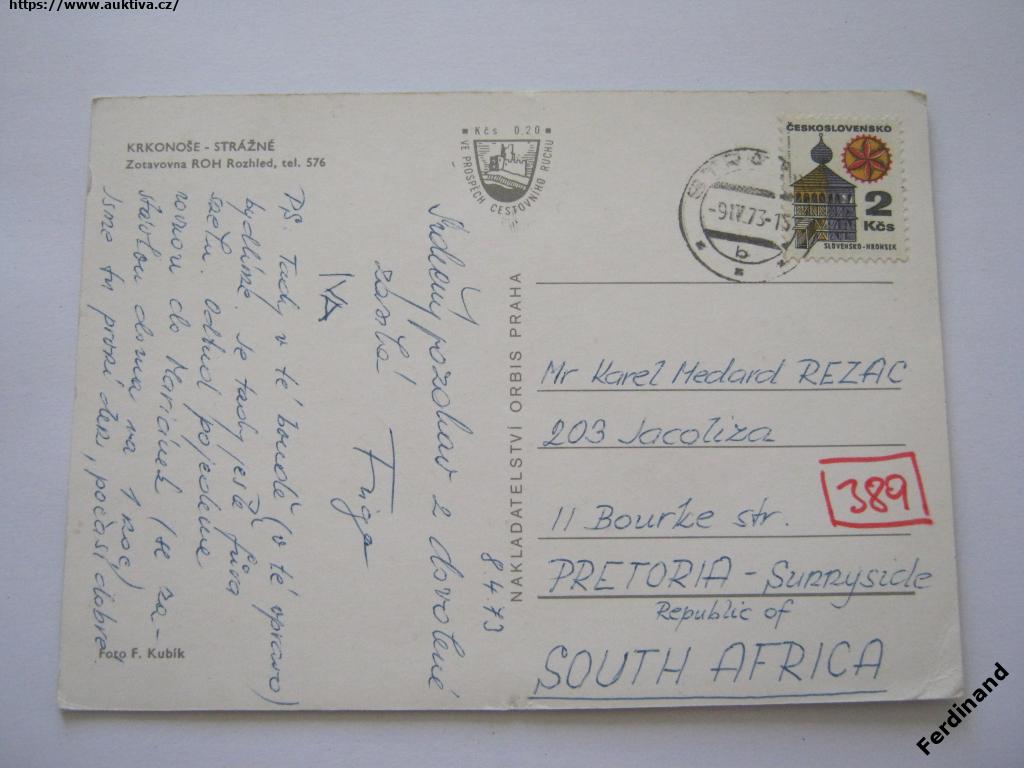 https://www.auktiva.cz/
KRKONOŠE - STRÁŽNÉ
Zotavovna ROH Rozhled, tel. 576
Kčs 0.20
VE PROSPĚCH CESTOVNÍHO RUCHU
ČESKOSLOVENSKO
2
Kčs
SLOVENSKO-HRONSEK
-9IV.73-15
b
Srdečný pozdrav z dovolené
zasílá
8.4.73
PS. Tady v té boudě (v té vpravo)
bydlíme. Je tady ještě fůra
sněhu. Odtud pojedeme
rovnou do Mariánek (se za-
stávkou doma na 1 noc)
Jsme tu první den, počasí dobré.
Foto F. Kubík
NAKLADATELSTVÍ ORBIS PRAHA
Mr Karel Medard REZAC
203 Jacoliza
11 Bourke str.
PRETORIA - Sunnyside
Republic of
SOUTH AFRICA
389
Ferdinand